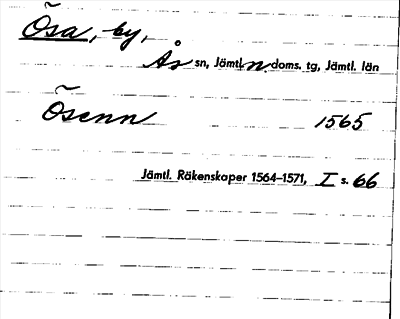 Õsa, by,
Ås sn, Jämtl. n. doms. tg, Jämtl. län
Õsenn 1565
Jämtl. Räkenskaper 1564–1571, I s. 66